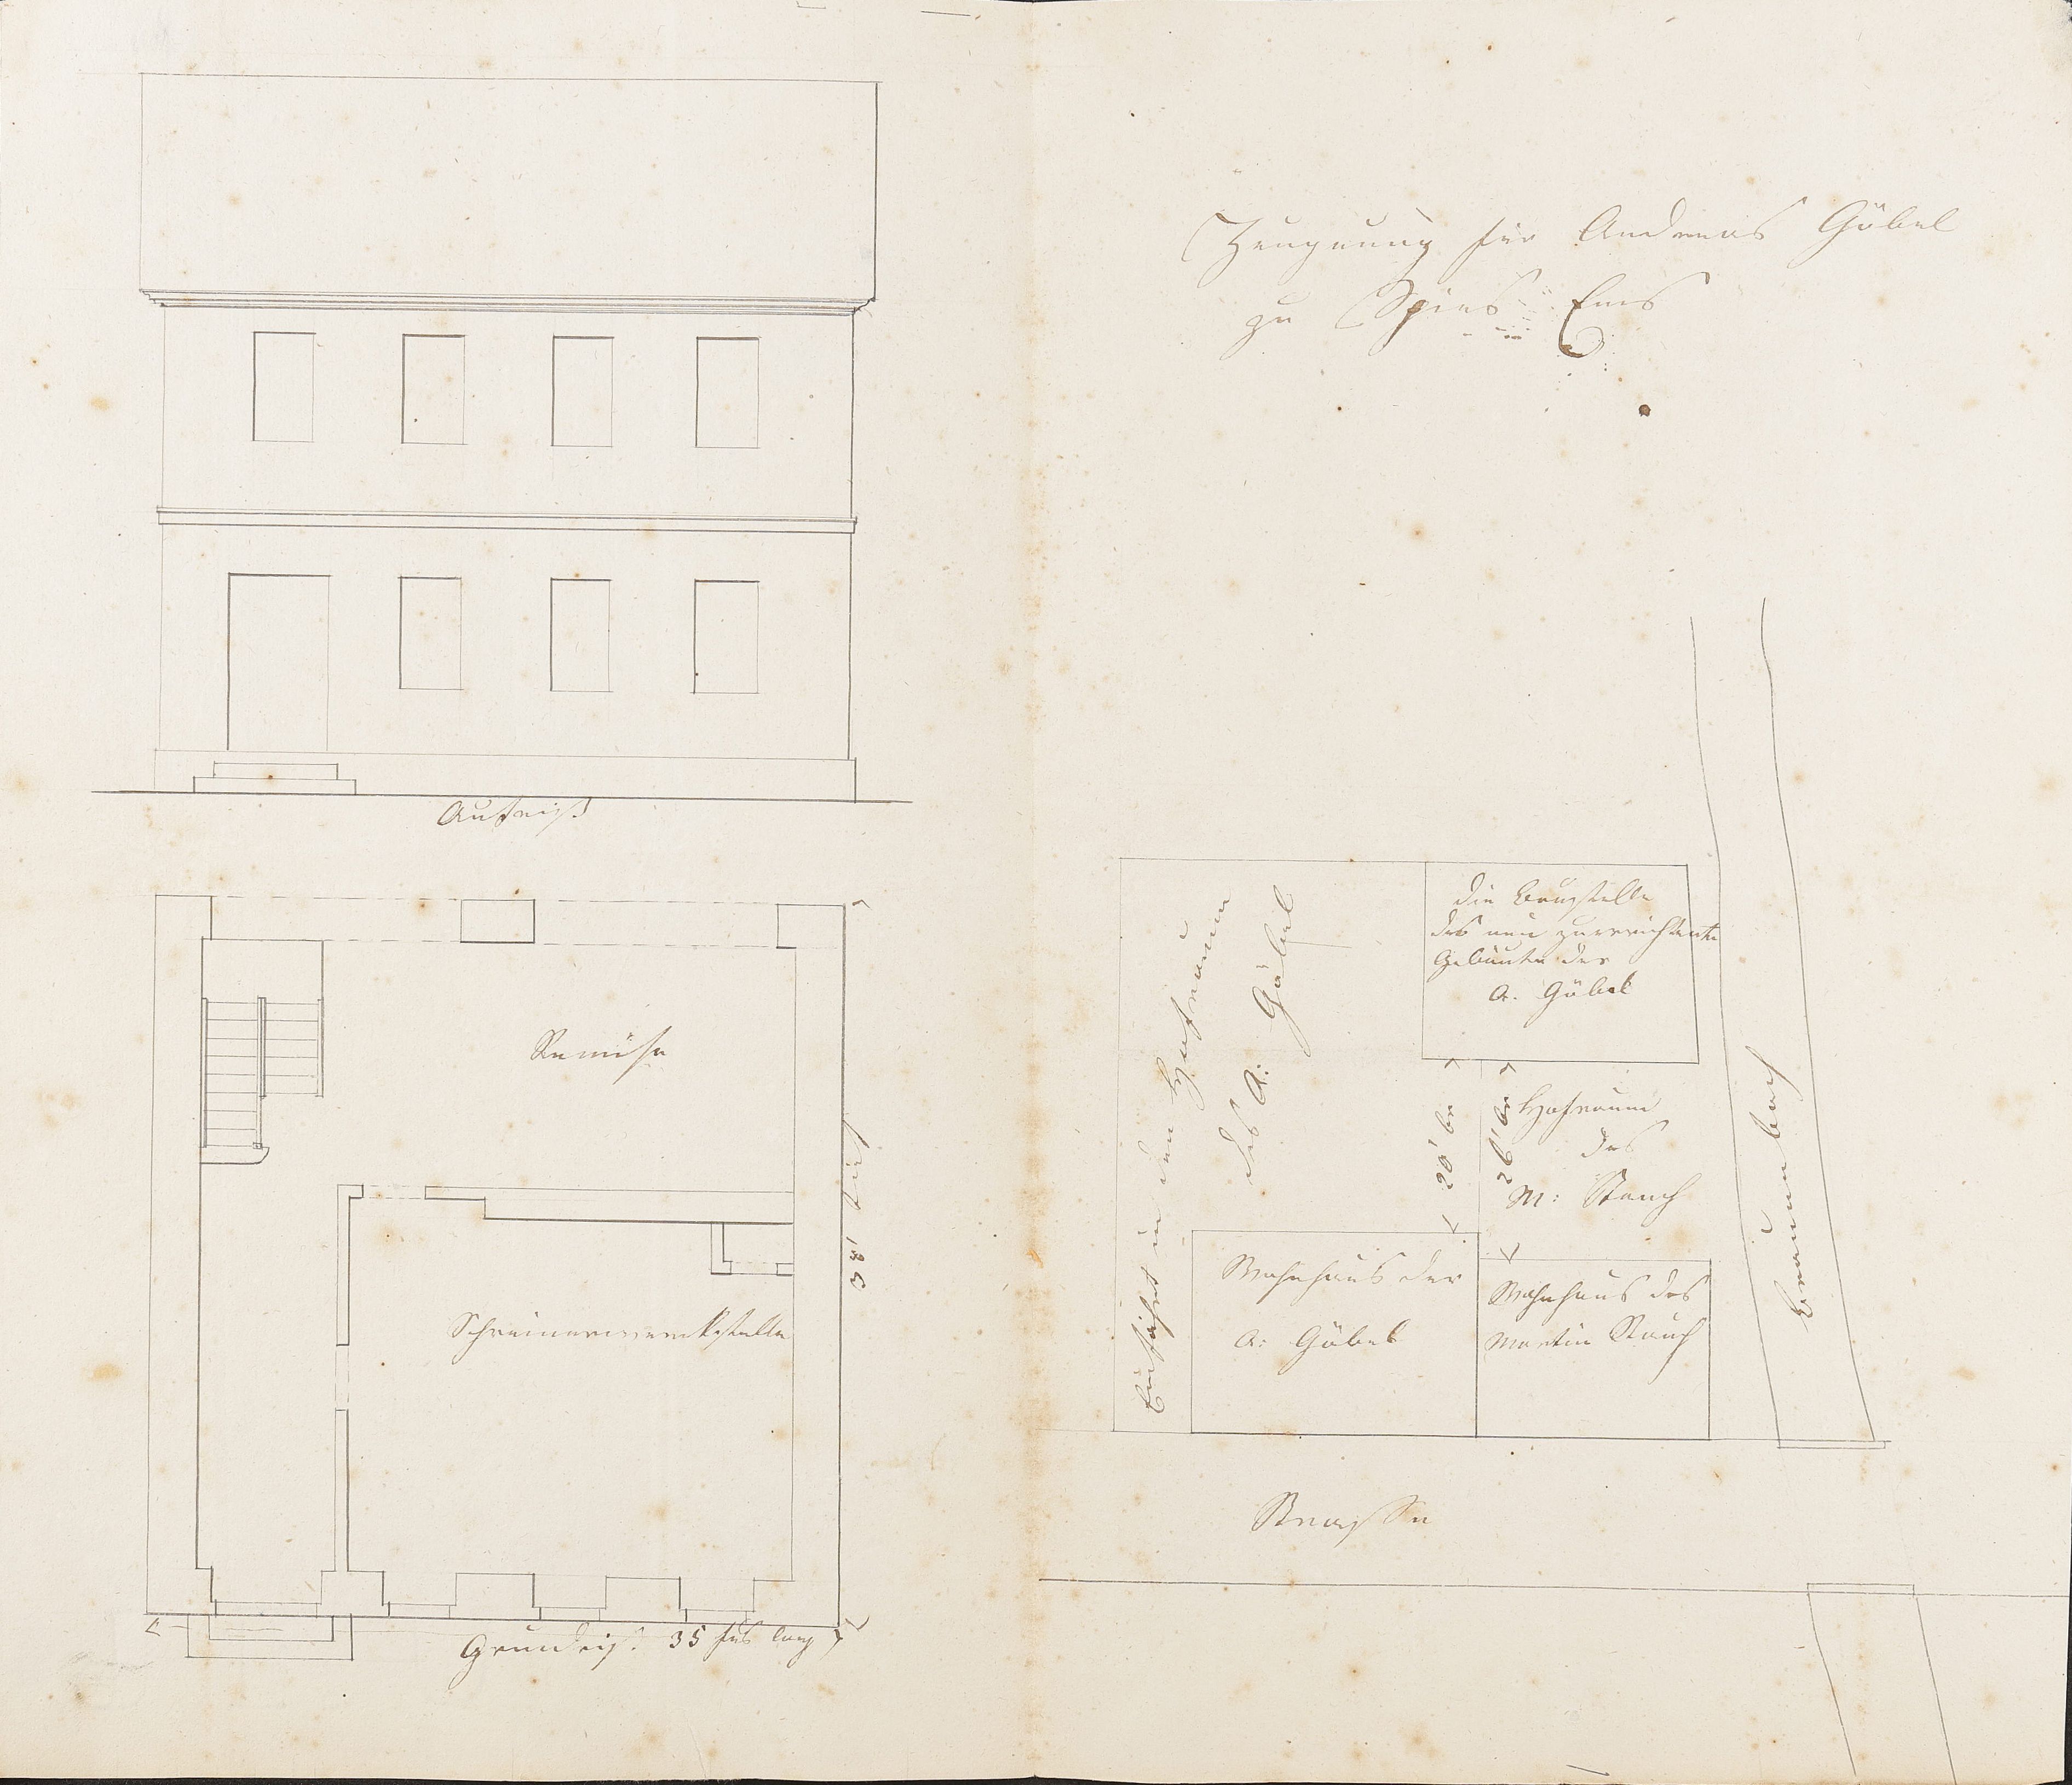 Zeugnung für Andreas Göbel
zu Spies Ems
Aufriß
Remise
Schreinerwerkstelle
33' tief
Grundriß. 35 fus lang
die Baustelle
des neu zuerrichtente
Gebäute der
A. Göbel
Einfahrt in den Hofraum
des A: Göbel
20' br
26' br
Hofraum
des
M: Stauch
Braunebach
Wohnhaus der
A: Göbel
Wohnhaus des
Martin Stauch
Strasse